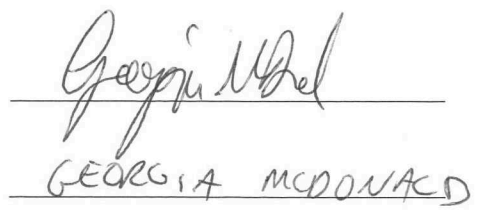 Georgia McDonald
GEORGIA MCDONALD